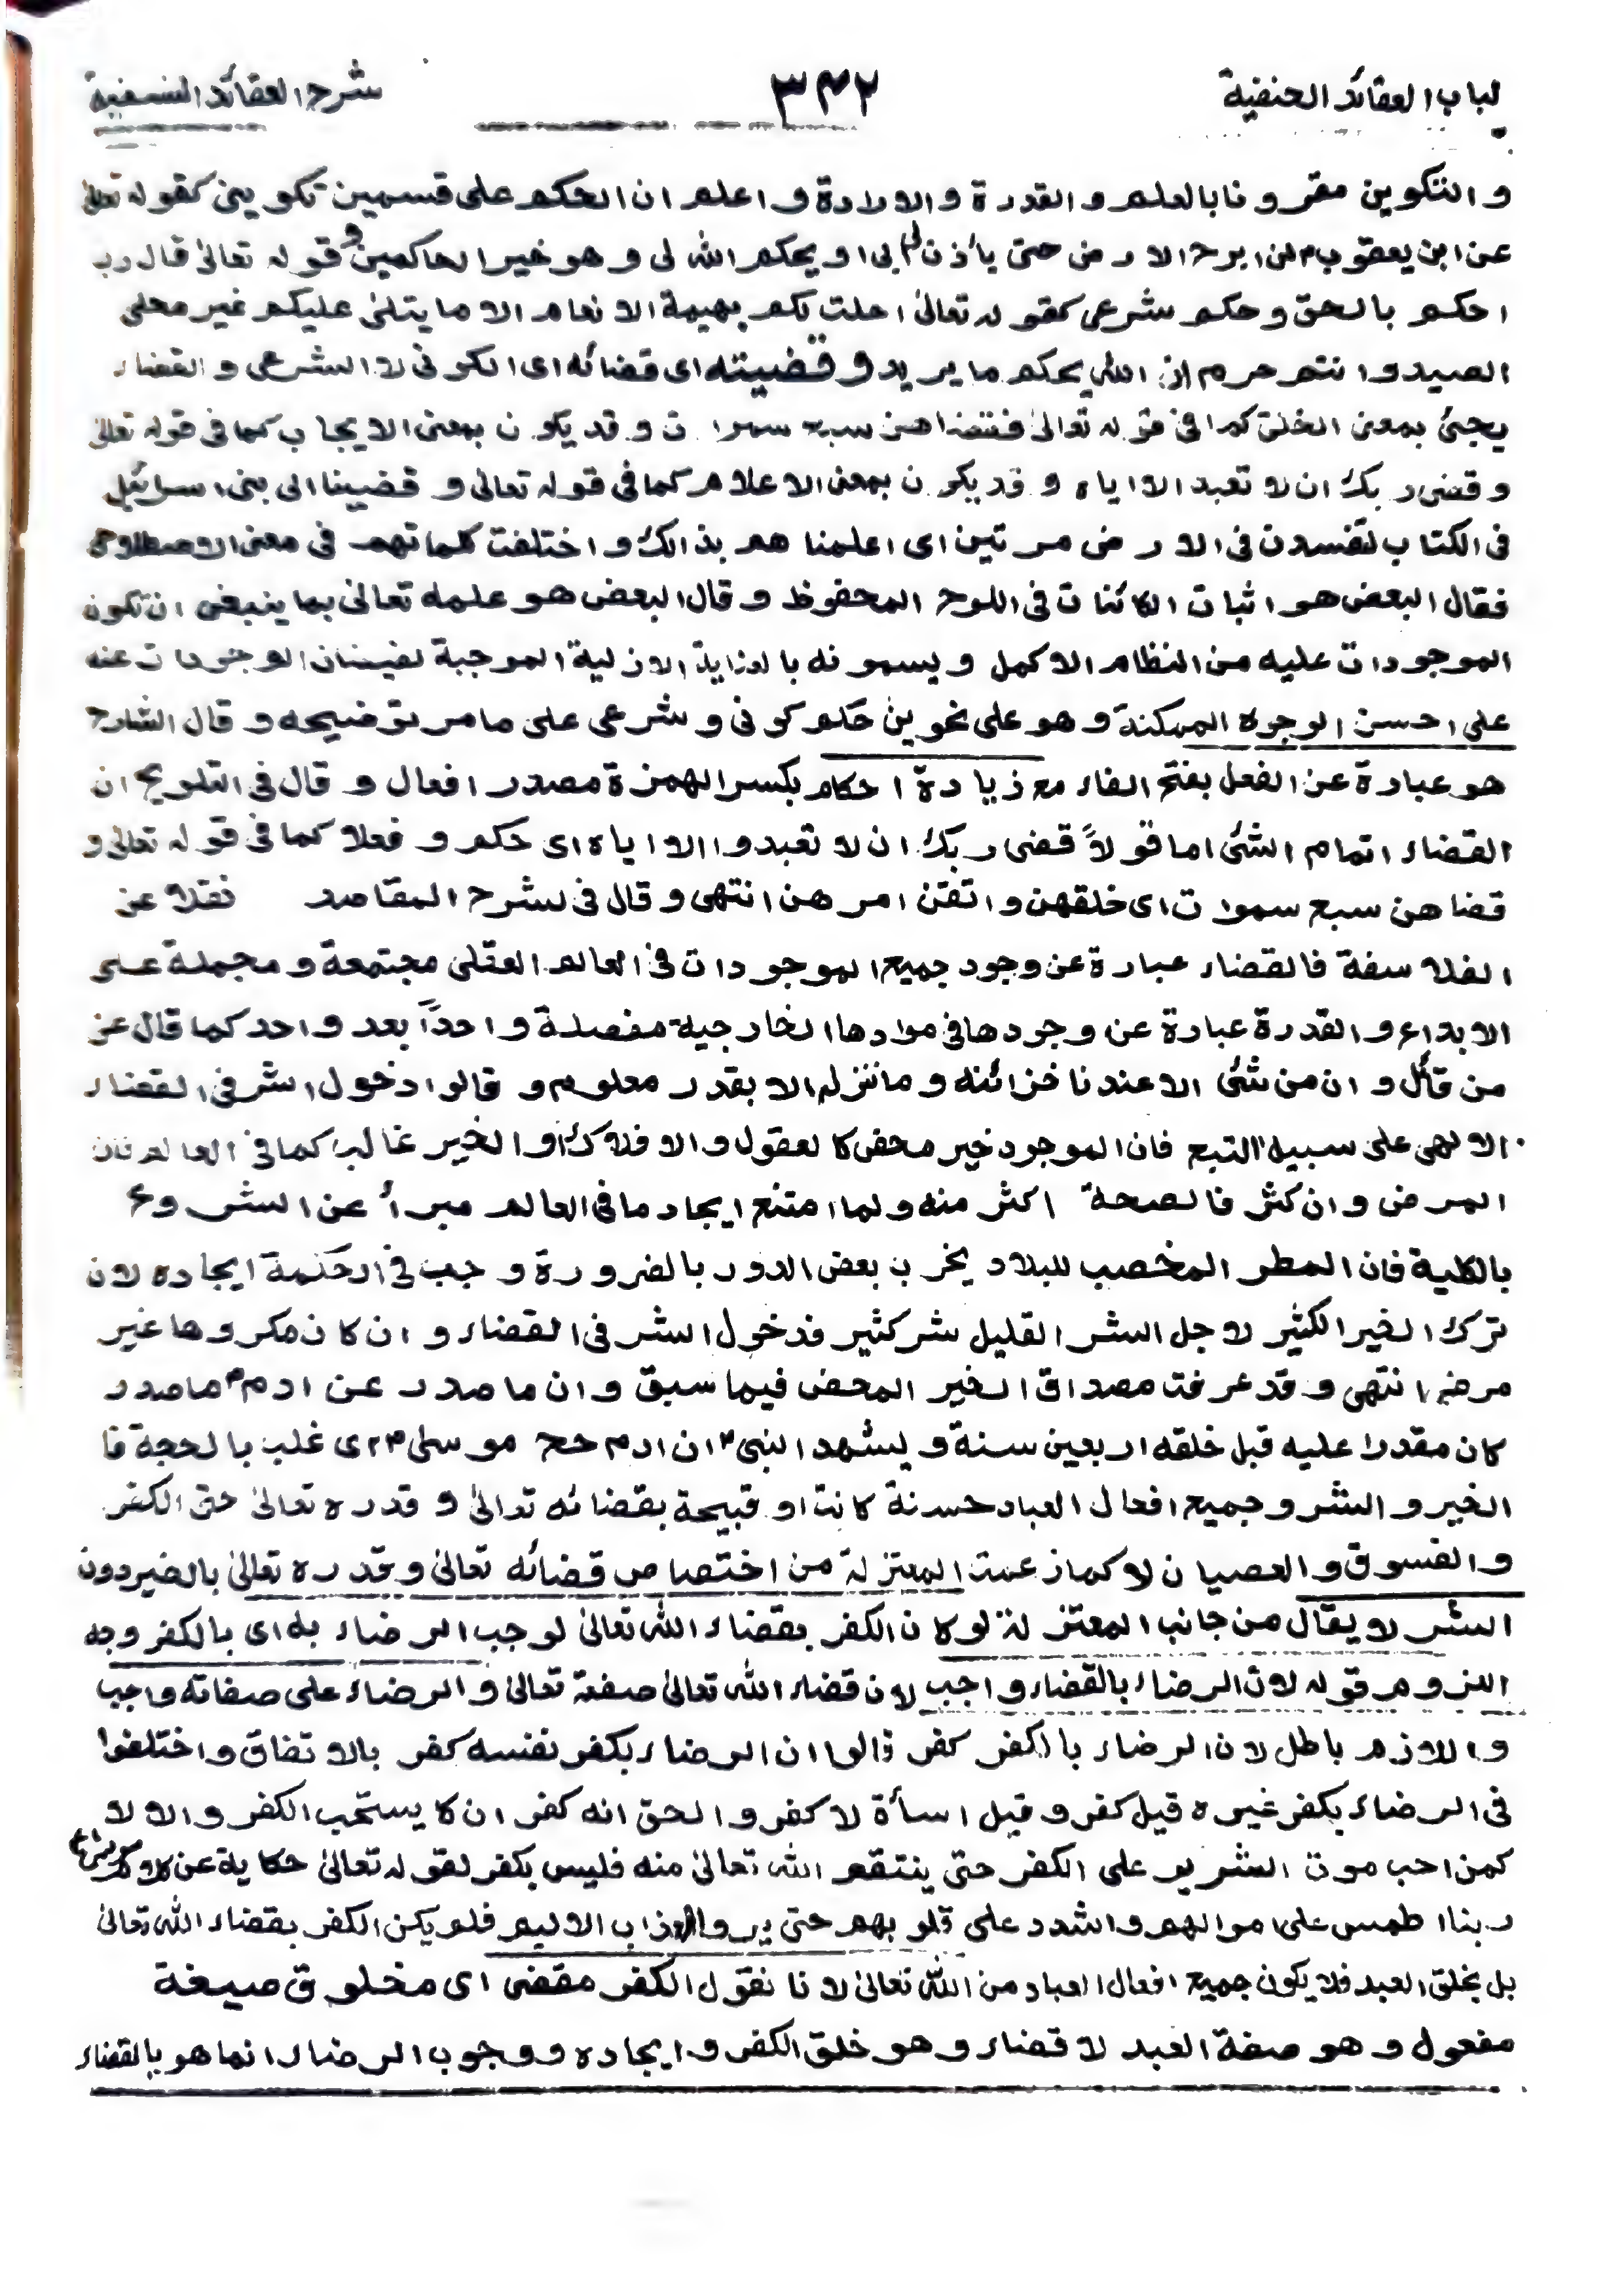 لباب العقائد الحنفية ٣٤٢ شرح العقائد النسفية
والتكوين مقرونا بالعلم والقدرة والارادة واعلم ان الحكم على قسمين تكوينى كقوله تعالى
عن ابن يعقوب لن ابرح الارض حتى يأذن لى ابى او يحكم الله لى وهو خير الحاكمين وقوله تعالىٰ قال رب
احكم بالحق وحكم شرعى كقوله تعالىٰ احلت لكم بهيمة الانعام الا ما يتلىٰ عليكم غير محلى
الصيد وانتم حرم ان الله يحكم ما يريد وقضيته اى قضائه اى الكونى لا الشرعى والقضاء
يجئ بمعنى الخلق كما فى قوله تعالىٰ فقضاهن سبع سموات وقد يكون بمعنى الايجاب كما فى قوله تعالىٰ
وقضى ربك ان لا تعبد الا اياه وقد يكون بمعنى الاعلام كما فى قوله تعالى وقضينا الى بنى اسرائيل
فى الكتاب لتفسدن فى الارض مرتين اى اعلمنا هم بذالك واختلفت كلماتهم فى معنى الاصطلاحى
فقال البعض هو اثبات الكائنات فى اللوح المحفوظ وقال البعض هو علمه تعالىٰ بما ينبغى ان تكون
الموجودات عليه من النظام الاكمل ويسمونه بالعناية الازلية الموجبة لفيضان الموجودات عنه
على احسن الوجوه الممكنة وهو على نحوين حكم كونى وشرعى على ما مر توضيحه وقال الشارح
هو عبارة عن الفعل بفتح الفاء مع زيادة احكام بكسر الهمزة مصدر افعال وقال فى التلويح ان
القضاء اتمام الشئ اما قولاً قضى ربك ان لا تعبدوا الا اياه اى حكم وفعلا كما فى قوله تعالى و
قضاهن سبع سموات اى خلقهن واتقن امرهن انتهى وقال فى شرح المقاصد نقلا عن
الفلاسفة فالقضاء عبارة عن وجود جميع الموجودات فى العالم العقلى مجتمعة ومجملة على
الابداع والقدرة عبارة عن وجودها فى موادها الخارجية مفصلة واحداً بعد واحد كما قال عز
من قائل وان من شئ الا عندنا خزائنه وما ننزله الا بقدر معلوم وقالوا دخول الشر فى القضاء
الالهى على سبيل التبع فان الموجود خير محض كالعقول والافلاك او الخير غالب كما فى العالم فان
المرض وان كثر فالصحة اكثر منه ولما امتنع ايجاد ما فى العالم مبرأ عن الشروع
بالكلية فان المطر المخصب للبلاد يخرب بعض الدور بالضرورة وجب فى الحكمة ايجاده لان
ترك الخير الكثير لاجل الشر القليل شر كثير فدخول الشر فى القضاء وان كان مكروها غير
مرضى انتهى وقد عرفت مصداق الخير المحض فيما سبق وان ما صدر عن ادم ما صدر
كان مقدرا عليه قبل خلقه اربعين سنة ويشهد النبى ان ادم حج موسى اى غلب بالحجة فا
الخير والشر وجميع افعال العباد حسنة كانت او قبيحة بقضائه تعالىٰ وقدره تعالىٰ حتى الكفر
والفسوق والعصيان لا كما زعمت المعتزلة من اختصاص قضائه تعالىٰ وقدره تعالىٰ بالخير دون
الشر لا يقال من جانب المعتزلة لو كان الكفر بقضاء الله تعالىٰ لوجب الرضاء به اى بالكفر وجه
اللزوم قوله لان الرضاء بالقضاء واجب لان قضاء الله تعالىٰ صفة تعالىٰ والرضاء على صفاته واجب
واللازم باطل لان الرضاء بالكفر كفر قالوا ان الرضاء بكفر نفسه كفر بالاتفاق واختلفوا
فى الرضاء بكفر غيره قيل كفر وقيل اسأة لا كفر والحق انه كفر ان كا يستحب الكفر والا لا
كمن احب موت الشرير على الكفر حتى ينتقم الله تعالىٰ منه فليس بكفر لقوله تعالىٰ حكاية عن
ربنا اطمس على اموالهم واشدد على قلوبهم حتى يروا العذاب الاليم فلم يكن الكفر بقضاء الله تعالىٰ
بل بخلق العبد فلا يكون جميع افعال العباد من الله تعالىٰ لانا نقول الكفر مقضى اى مخلوق صيغة
مفعول وهو صفة العبد لا قضاء وهو خلق الكفر وايجاده ووجوب الرضاء انما هو بالقضاء